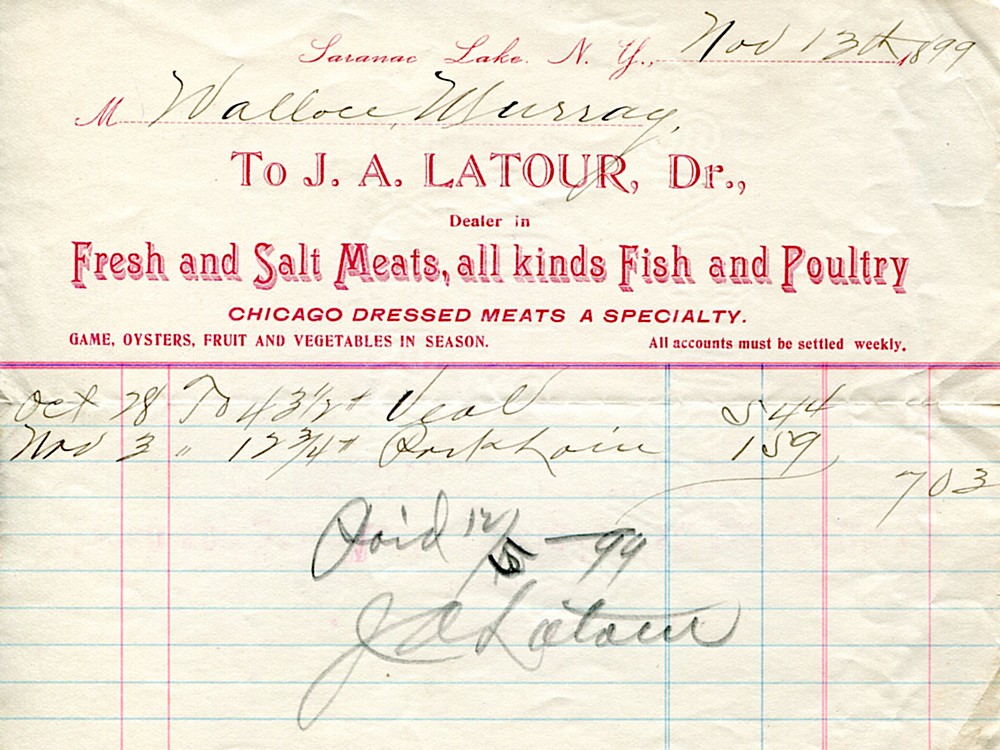 Saranac Lake. N. Y., Nov 13th 1899
M Wallace Murray,
To J. A. LATOUR, Dr.,
Dealer in
Fresh and Salt Meats, all kinds Fish and Poultry
CHICAGO DRESSED MEATS A SPECIALTY.
GAME, OYSTERS, FRUIT AND VEGETABLES IN SEASON. All accounts must be settled weekly.
Oct 28 To 43 1/2 # Veal 5 44
Nov 3 " 12 3/4 # Pork Loin 1 59
7 03
Paid 12/5 - 99
J A Latour